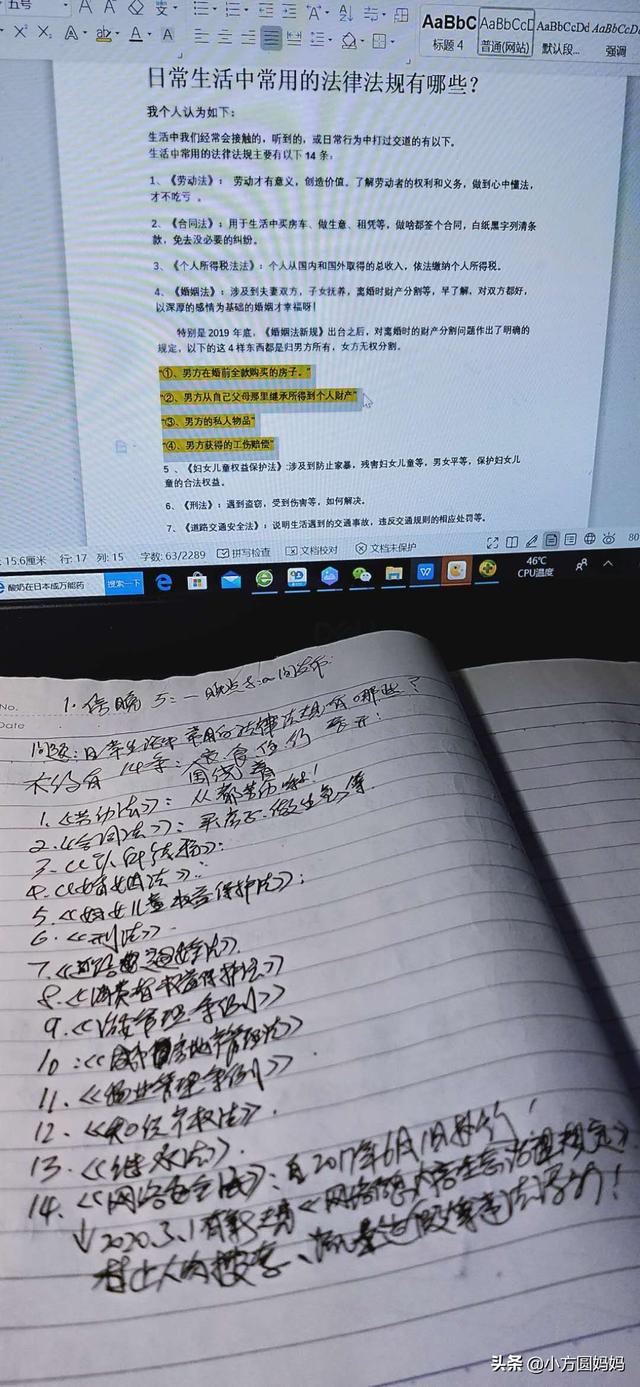 五号
AaBbC AaBbCcD AaBbCcDd AaBbCcD
标题 4 普通(网站) 默认段... 强调
日常生活中常用的法律法规有哪些？
我个人认为如下：
生活中我们经常会接触的，听到的，或日常行为中打过交道的有以下。
生活中常用的法律法规主要有以下 14 条：
1、《劳动法》： 劳动才有意义，创造价值。了解劳动者的权利和义务，做到心中懂法，
才不吃亏 。
2、《合同法》：用于生活中买房车、做生意、租凭等，做啥都签个合同，白纸黑字列清条
款，免去没必要的纠纷。
3、《个人所得税法法》：个人从国内和国外取得的总收入，依法缴纳个人所得税。
4、《婚姻法》：涉及到夫妻双方，子女抚养，离婚时财产分割等，早了解，对双方都好，
以深厚的感情为基础的婚姻才幸福呀！
特别是 2019 年底，《婚姻法新规》出台之后，对离婚时的财产分割问题作出了明确的
规定，以下的这 4 样东西都是归男方所有，女方无权分割。
“①、男方在婚前全款购买的房子。”
“②、男方从自己父母那里继承所得到个人财产”
“③、男方的私人物品”
“④、男方获得的工伤赔偿”
5 、《妇女儿童权益保护法》:涉及到防止家暴，残害妇女儿童等，男女平等，保护妇女儿
童的合法权益。
6、《刑法》：遇到盗窃，受到伤害等，如何解决。
7、《道路交通安全法》：说明生活遇到的交通事故，违反交通规则的相应处罚等。
15.6厘米 行: 17 列: 15 字数: 63/2289 拼写检查 文档校对 文档未保护 80
酸奶在日本成万能药 搜索一下 46℃
CPU温度
No.
Date
问题：日常生活中常用的法律法规有哪些？
大约有 14条：围绕着衣食住行 展开！
1.《劳动法》：
2.《合同法》：买房子、做生意等.
3.
4.《婚姻法》：
5.《妇女儿童权益保护法》；
6.《刑法》.
7.《道路交通安全法》.
8.《消费者权益保护法》
9.《治安管理条例》
10.《城市房地产管理法》
11.《物业管理条例》
12.《知识产权法》.
13.《继承法》.
14.《网络安全法》：自2017年6月1日执行！
↓2020.3.1 《网络信息内容生态治理规定》
禁止人肉搜索、流量造假等违法
头条 @小方圆妈妈